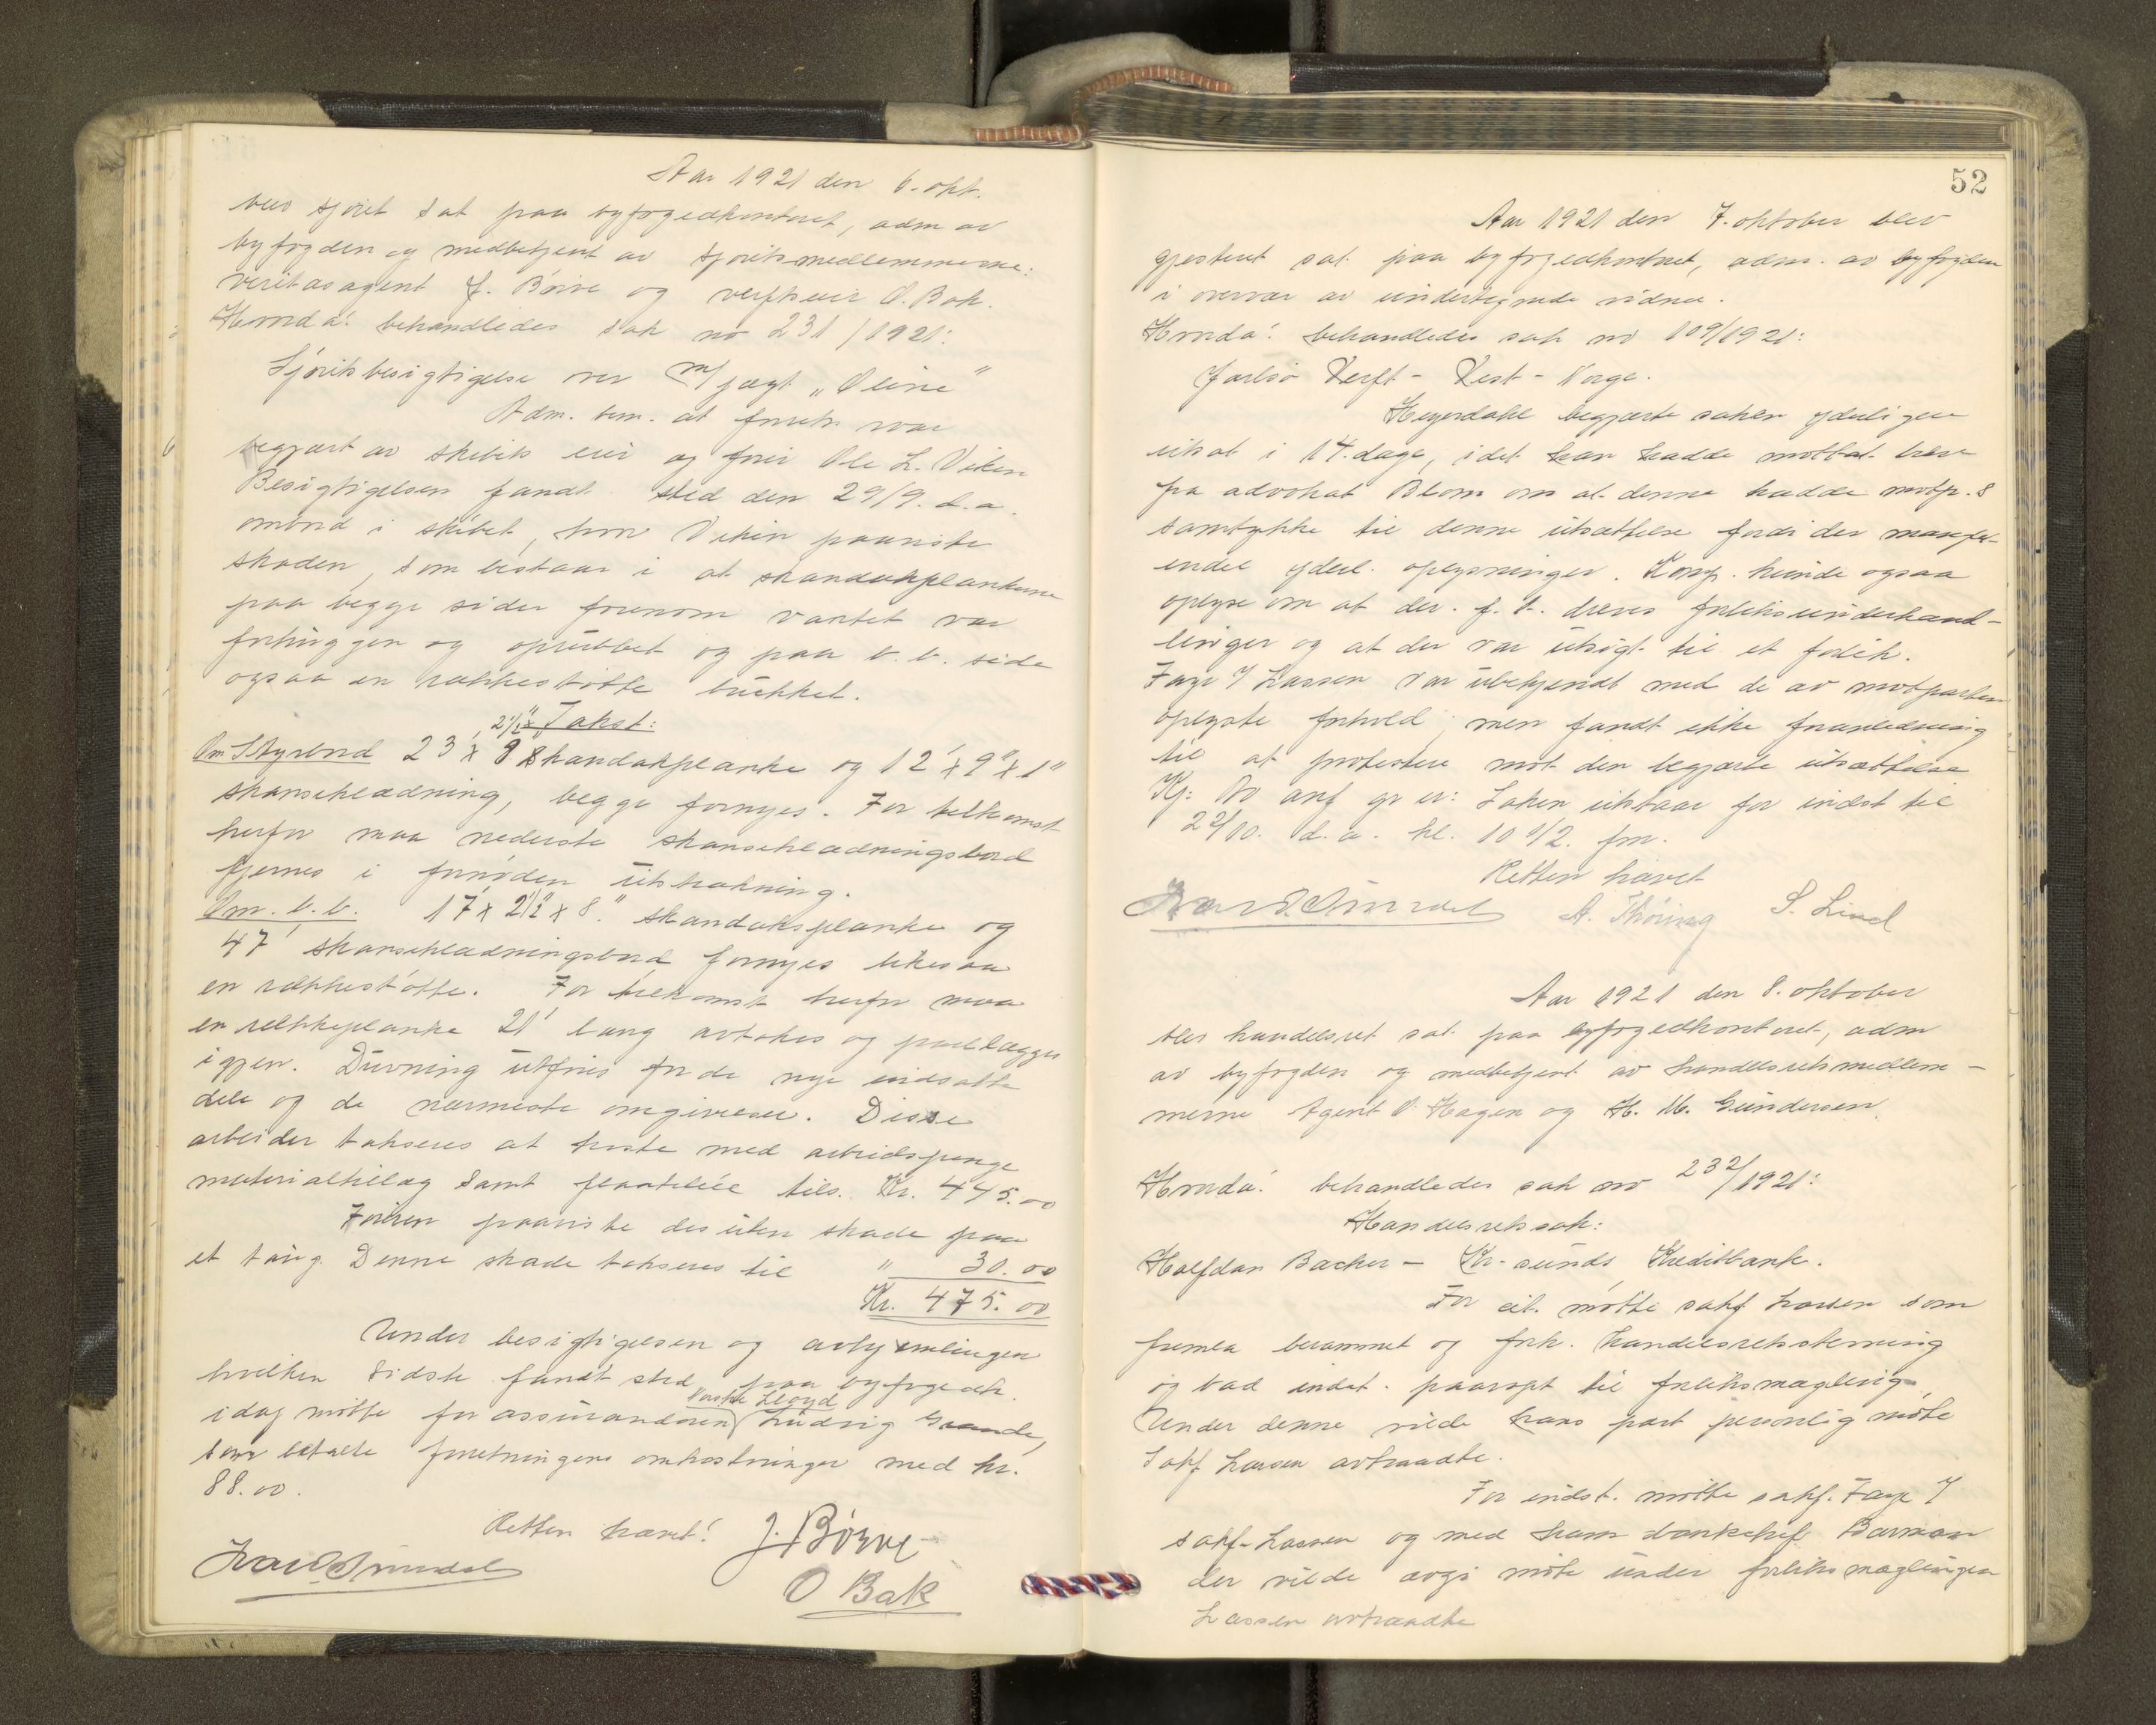 Aar 1921 den 6. okt.
blev sjøret sat paa byfogedkontoret, adm av
byfogden og medbetjent av sjøretsmedlemmerne:
veritasagent J. Börve og verftseier O. Bak.
Hvorda: behandledes sak no 231/1921:
Sjøretsbesigtigelse over m/jagt "Oline"
Adm. bem. at forretn. var
begjært av skibets eier og fører Ole L. Viken
Besigtigelsen fandt sted den 29/9. d.a.
ombord i skibet, hvor Viken paaviste
skaden, som bestaar i at skandækplankerne
paa begge sider forenom vantet var
forhuggen og oprubbet og paa b.b. side
ogsaa en rækkestøtte brukket.
Takst:
Om Styrbord 23' x 2 1/2" x 8 skandækplanke og 12' x 9" x 1"
skanseklædning, begge fornyes. For tilkomst
herfor maa nederste skanseklædningsbord
fjernes i fornøden utstrækning.
Om. b.b. 17' x 2 1/2" x 8" skandæksplanke og
47' skanseklædningsbord fornyes likesaa
en rækkestøtte. For tilkomst herfor maa
en rækkeplanke 21' lang avtakes og paalægges
igjen. Drivning utføres for de nye indsatte
dele og de nærmeste omgivelser. Disse
arbeider takseres at koste med arbeidspenge
materialtillæg samt flaateleie tils. Kr. 445.00
Føreren paaviste desuten skade paa
et taug. Denne skade takseres til " 30.00
Kr. 475.00
Under besigtigelsen og avhjemlingen
hvilken sidste fandt sted paa byfogedk.
Norske Lloyd
idag møtte for assurandøren Ludvig
som betalte forretningens omkostninger med kr.
88.00.
Retten hævet!
J. Börve
O Bak
52
Aar 1921 den 7. oktober blev
gjesteret sat paa byfogedkontoret, adm. av byfogden
i overvær av undertegnede vidner.
Hvorda: behandledes sak no 109/1921:
Jarlsø Verft - Vest-Norge.
Heyerdahl begjærte saken yderligere
utsat i 14. dage, idet han hadde mottat brev
fra advokat Blom om at denne hadde motp.s
samtykke til denne utsættelse fordi der manglet
endel yderl. oplysninger. Komp. kunde ogsaa
oplyse om at der f.t. dreves forliksunderhand-
linger og at der var utsigt til et forlik.
Faye f Lassen var ubekjendt med de av motparten
oplyste forhold, men fandt ikke foranledning
til at protestere mot den begjærte utsættelse
Kj: Av anf gr er: Saken utstaar for indst til
22/10. d.a. kl. 10 1/2. fm.
Retten hævet
A. Thöring S. Lind
Aar 1921 den 8. oktober
blev handelsret sat paa byfogedkontoret, adm
av byfogden og medbetjent av handelsretsmedlem-
merne Agent O. Hagen og H. M. Gundersen.
Hvorda: behandledes sak no 232/1921:
Handelsretssak:
Halfdan Backer - Kr.sunds Kreditbank.
For cit. møtte sakf Larsen som
fremla berammet og fork. handelsretsstevning
og bad indst. paaropt til forliksmægling
Under denne vilde hans part personlig møte
Sakf. Larsen avtraadte.
For indst. møtte sakf. Faye f
sakf. Lassen og med ham bankchef
der vilde avgi møte under forliksmæglingen
Lassen avtraadte